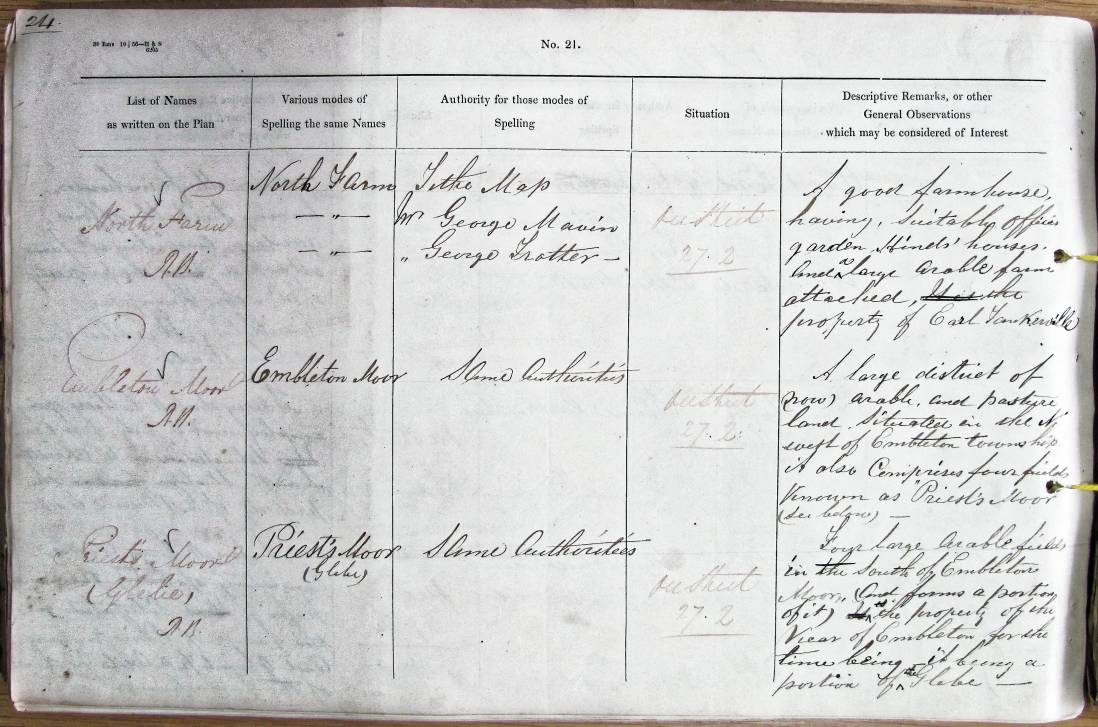 24.
No. 21.
List of Names
as written on the Plan
Various modes of
Spelling the same Names
Authority for those modes of
Spelling
Situation
Descriptive Remarks, or other
General Observations
which may be considered of Interest
North Farm
A.B.
North Farm
— " —
— " —
Tithe Map
Mr George Mavin
" George Trotter —
On Sheet
27.2
A good farmhouse,
having, suitably offices
garden, Hinds' houses.
And a large arable farm
attached, It is the
property of Earl Tankerville
Embleton Moor
A.B.
Embleton Moor
Same Authorities
On Sheet
27.2
A large district of
(now) arable, and pasture
land, situated in the N.
west of Embleton township
it also Comprises four fields
Known as "Priest's Moor
(see below) —
Priest's Moor
(Glebe)
A.B.
Priest's Moor
(Glebe)
Same Authorities
On Sheet
27.2
Four large arable fields
in the South of Embleton
Moor, (and forms a portion
of it) the property of the
Vicar of Embleton for the
time being — it being a
portion of the Glebe —